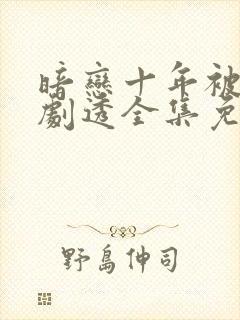 暗戀十年被
劇透全集免
野島伸司